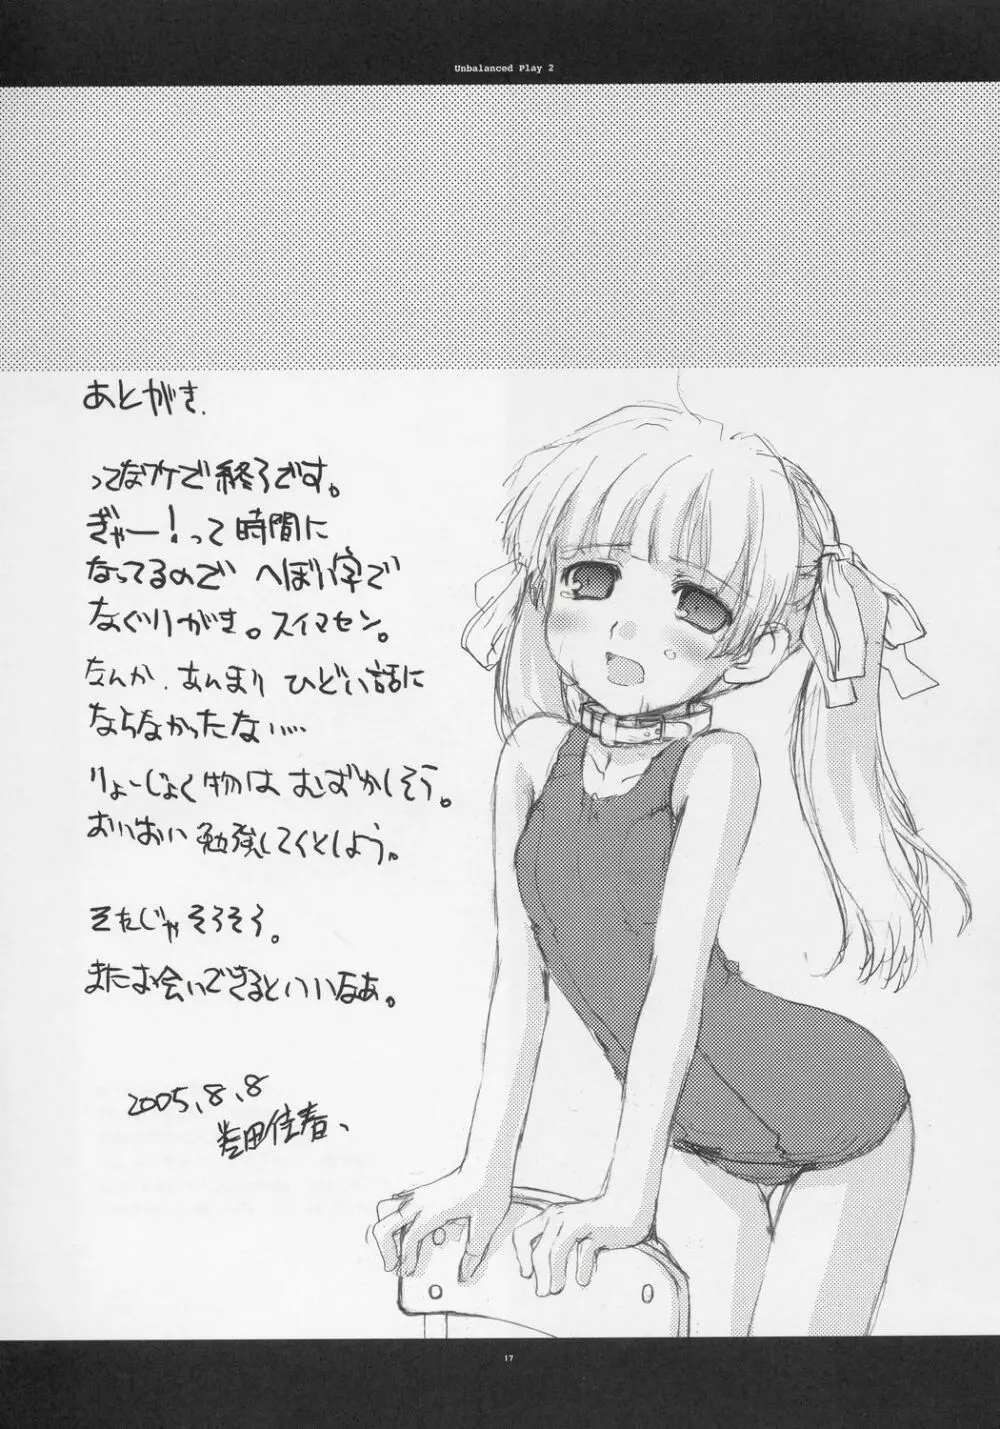 Unbalanced Play 2
あとがき.
ってなワケで終了です。
ぎゃー!って時間に
なってるので へぼい字で
なぐりがき。スイマセン。
なんか、あんまり ひどい話に
ならなかったなぃ…
りょーじょく物は むずかしそう。
おいおい 勉強してくとしよう。
そんじゃそろそろ。
またお会いできるといいなぁ。
2005.8.8
17